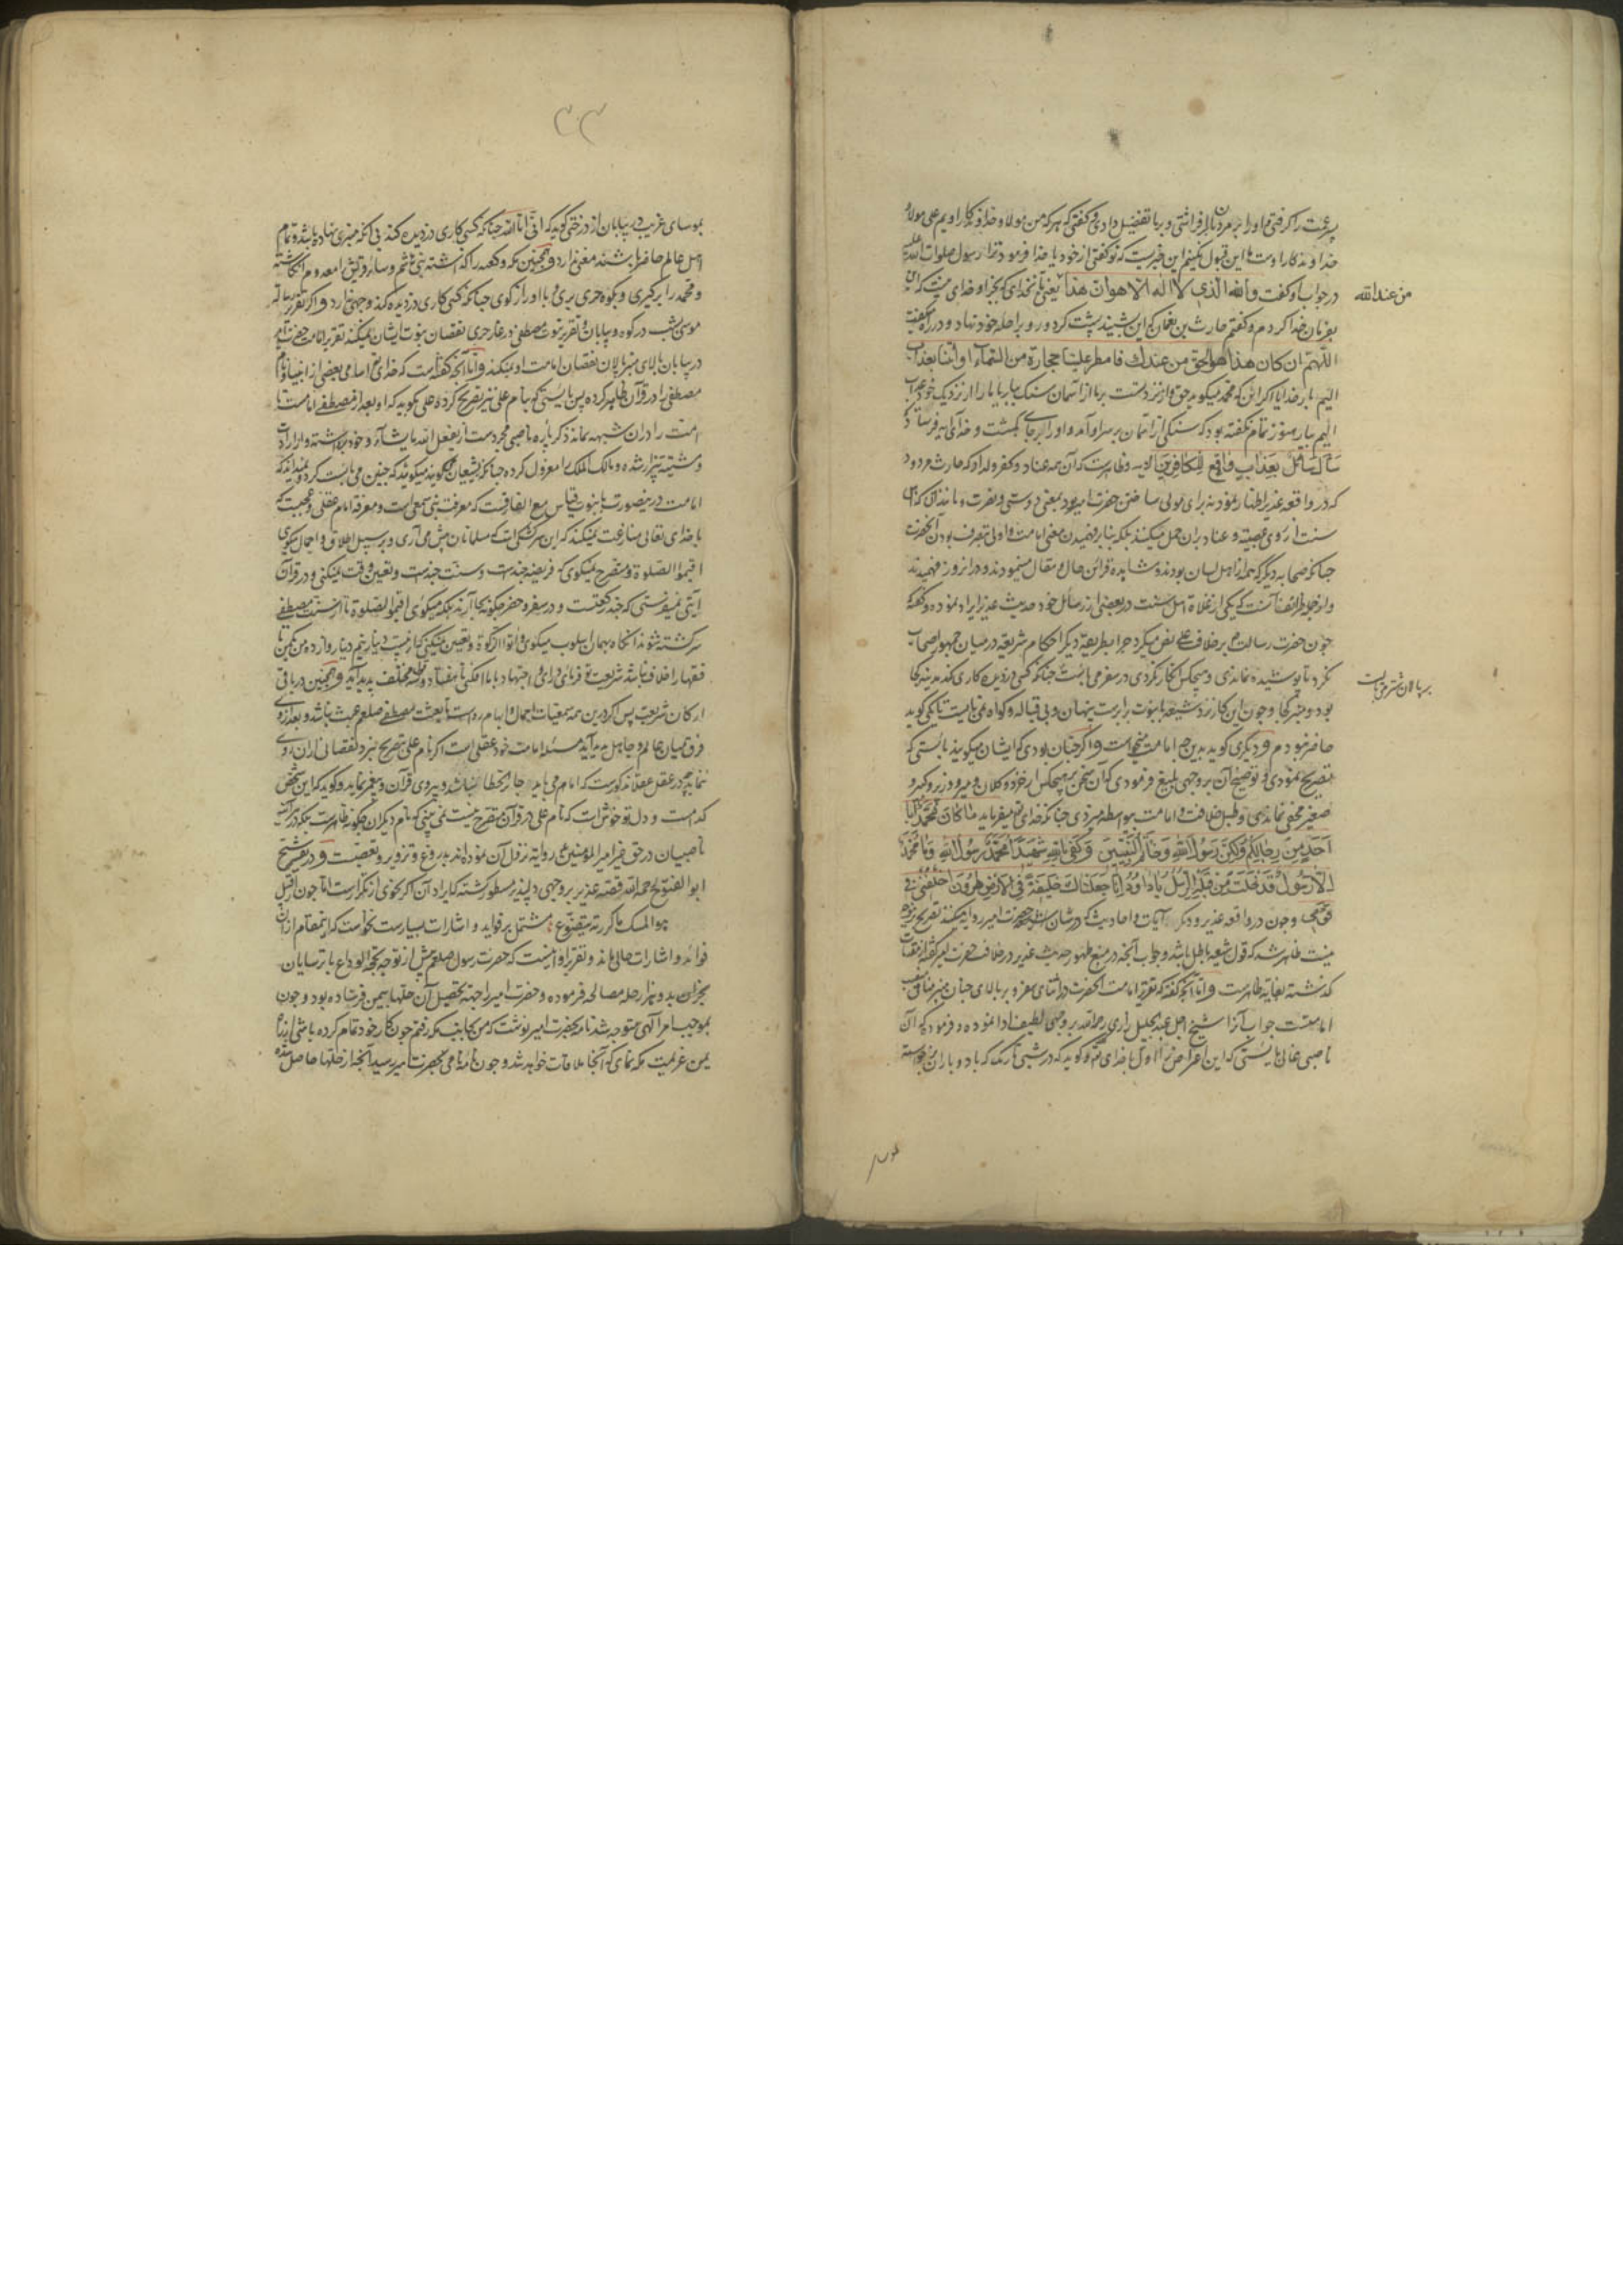 پسر عمت را گرفتی و او را بر مردمان بر افراشتی و بر ما تفضیل دادی و گفتی که هر که من مولا و خداوندگار اویم علی مولا و
خداوندگار اوست ما این قبول نکنیم این خبریست که تو گفتی از خود یا خدا فرمود ترا رسول صلوات الله علیه
در جواب او گفت والله الذی لا اله الا هو ان هذا یعنی بآن خدای که بجز او خدای نیست که این
من عند الله
بفرمان خدا کردم و گفتم حارث بن نعمان که این شنید پشت کرد و رو براحله خود نهاد و در راه گفت
اللهم ان کان هذا هو الحق من عندك فامطر علینا حجارة من السماء او ائتنا بعذاب
الیم بار خدایا اگر این که محمد میگوید حق و از نزد تست بر ما از آسمان سنگ بباران یا ما را از نزدیک خود عذاب
الیم بیار هنوز تمام نگفته بود که سنگی از آسمان بر سر او آمد و او را بر جای بکشت و خدای آیه فرستاد که
سأل سائل بعذاب واقع للکافرین الایه و ظاهرست که آن همه عناد و کفر ولداد که حارث مردود
که در واقعه غدیر اظهار نمود نه برای مولی ساختن حضرت امیر بود بمعنی دوستی و نصرت و مانند آن که اهل
سنت از روی عصبیت و عناد بر آن حمل میکنند بلکه بنابر فهمیدن معنی امامت و اولی بتصرف بودن آنحضرت
چنانکه صحابه دیگر که همه از اهل لسان بودند و مشاهده قرائن حال و مقال مینمودند و در آن روز فهمیدند
و از جمله ظرائف آنست که یکی از غلاة اهل سنت در بعضی از رسائل خود حدیث غدیر ایراد نموده و گفته
چون حضرت رسالت بر خلافت علی نص میکرد چرا بطریقه دیگر احکام شریعه در میان جمهور اصحاب
نکرد تا پوشیده نماندی و هیچکس انکار نکردی در سفر می بایست چنانکه کسی دزدیده کاری کند بر منبر کجا
بر پالان شتر می بایست
بود و منبر کجا و چون این کار نزد شیعه با نبوت برابرست پنهان و بی قباله و گواه نمی بایست تا یکی گوید
حاضر نبودم و دیگری گوید بدین امامت میخواست و اگر چنان بودی که ایشان میگویند بایستی که
تصریح نمودی و توضیح آن بر وجهی بلیغ فرمودی که آن سخن بر هیچکس از خرد و کلان و میر و وزیر و کبیر و
صغیر مخفی نماندی و طبل خلافت و امامت بواسطه او میزدی چنانکه خدای تعالی میفرماید ما کان محمد ابا
احد من رجالکم ولکن رسول الله وخاتم النبیین وکفی بالله شهیدا محمد رسول الله وما محمد
الا رسول قد خلت من قبله الرسل یا داود انا جعلناك خلیفة فی الارض هرون اخلفنی فی
قومی و چون در واقعه غدیر و دیگر آیات و احادیث که در شان حضرت امیر روایت میکنند تصریح
نیست ظاهر شد که قول شیعه باطل باشد و جواب آنچه در منع ظهور حدیث غدیر در خلافت حضرت امیر گفته
گذشته بغایت ظاهرست و اما آنچه گفته که تقریر امامت آنحضرت در اثنای سفر و بر بالای چنان منبر مناسب
امامتست جواب آنرا شیخ اجل عبد الجلیل رازی رحمه الله بر وجهی لطیف ادا نموده و فرموده که آن
ناصبی غالی بایستی که این اعتراض اول با خدای کند و گوید که در شبی تاریک که باد و باران برخاسته
بموسای
۳۳
بموسای غریب در بیابان از درختی گوید که انی انا الله چنانکه کسی کاری دزدیده کند بی آنکه منبری نهاده باشد و تمام
اهل عالم حاضر باشند معنی ندارد و همچنین مکه و کعبه را گذاشته بنی هاشم و سائر قریش را معدوم انگاشته
و محمد را برگیری و بکوه حری بری و با او راز گوی چنانکه کسی کاری دزدیده کند وجهی ندارد و اگر تقریر رسالت
موسی بشب در کوه و بیابان و تقریر نبوت مصطفی در غار حری نقصان نبوت ایشان نمیکند تقریر امامت حضرت امیر
در بیابان بالای منبر پالان نقصان امامت او نمیکند و اما آنچه گفته است که خدای تعالی اسامی بعضی از انبیا و نام
مصطفی را در قرآن ظاهر کرده پس بایستی که بنام علی نیز تصریح کردی علی گوید که او بعد از مصطفی امامست تا
امت را در آن شبهه نماند ذکر باره ناصبی مجرد دست از یفعل الله ما یشاء و خود برداشته و از ارادت
و مشیت بیزار شده و مالک الملک را معزول کرده چنانکه شیعیان گویند میگوید که چنین می بایست کرد و نمیداند که
امامت درین صورت با نبوت قیاس مع الفارقست که معرفت نبی سمعی است و معرفة امام عقلی و عجبست که
با خدای تعالی منازعت نمیکند که این سرگشتگی است که مسلمانان را پیش می آری و بر سبیل اطلاق و اجمال میگوی
اقیموا الصلوة و مصرح نمیگوی که فریضه چندست و سنت چندست و تعیین وقت نمیکنی و در قرآن
آیتی نمیفرستی که چند رکعتست و در سفر و حضر چگونه بجا آرند بلکه میگوی اقیموا الصلوة تا امت مصطفی
سرگشته شوند آنگاه بهمان اسلوب میگوی و اتوا الزکوة و تعیین نمیکنی که از بیست دینار نیم دینار و از ده من یک من تا
فقها را خلاف نباشد شریعت و فرمای و رای و اجتهاد ما را افکنی تا هفتاد و سه مختلف پدید آید و همچنین در باقی
ارکان شریعت پس اگر درین همه سمعیات اجمال و ابهام رواست تا بعثت مصطفی صلعم عبث نباشد و بعد از وی
فرق میان عالم و جاهل پدید آید مسئله امامت خود عقلی است اگر نام علی بتصریح نبرد نقصانی از آن روی
ننماید چه در عقل عقلا مذکورست که امام می باید جایز الخطا نباشد و پیروی قرآن و پیغمبر نماید و گوید که این شخص
کدامست و دل تو خوش است که نام علی در قرآن بتصریح نیست نمی بینی که نام دیگران چگونه ظاهرست بلکه در
ناصبیان در حق غیر امیر المؤمنین علی روایت نزول آن نموده اند بدروغ و تزویر و تعصبست و در تفسیر شیخ
ابو الفتوح رحمه الله قصه غدیر بر وجهی دلپذیر مسطور گشته که ایراد آن اگر نحوی از تکرارست اما چون از قبیل
هو المسك ما کررته یتضوع مشتمل بر فواید و اشارات بسیارست نخواست که این مقام از آن
فوائد و اشارات خالی ماند و تقریر او اینست که حضرت رسول صلعم پیش از توجه بحجة الوداع با ترسایان
نجران بدو هزار حله مصالحه فرموده و حضرت امیر را جهت تحصیل آن حلها بیمن فرستاده بود و چون
بموجب امر آلهی متوجه شد نامه بحضرت امیر نوشت که من بجانب مکه رفتم چون کار خود تمام کرده باشی از راه
یمن عزیمت مکه نمای که آنجا ملاقات خواهد شد و چون نامه نامی بحضرت امیر رسید آنچه از حلها حاصل شده